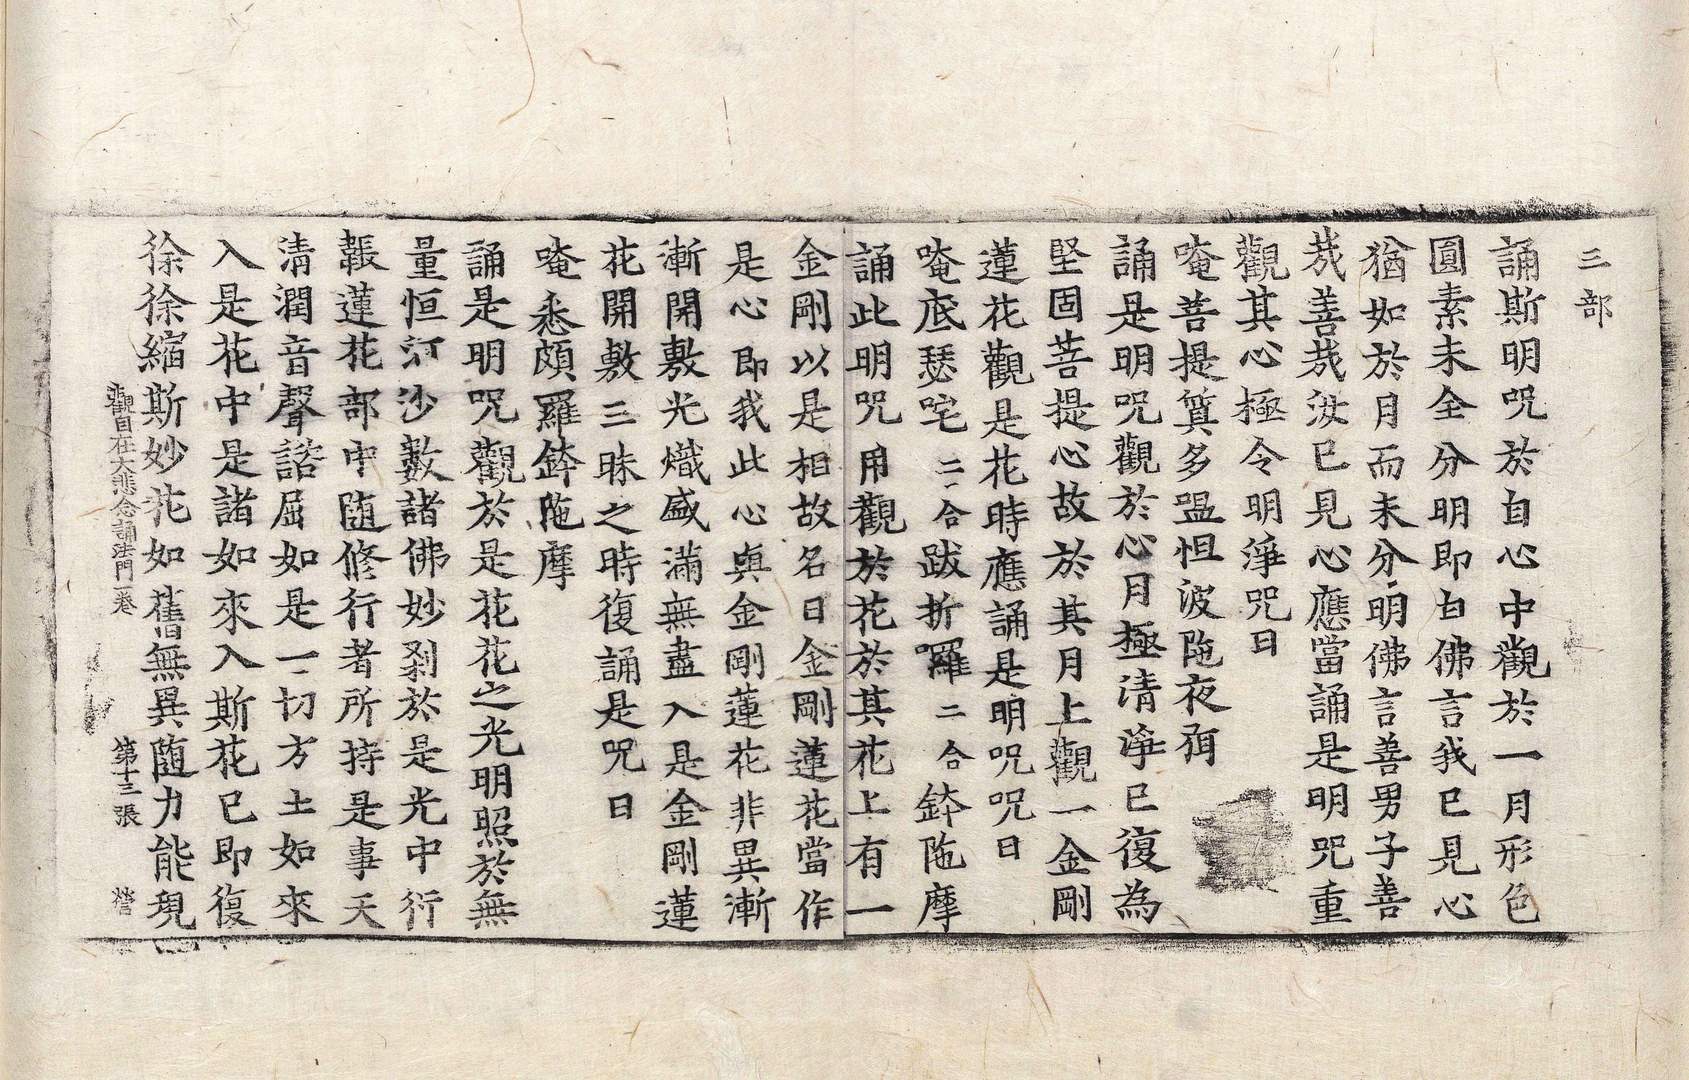 三部
誦斯明呪於自心中觀於一月形色
圓素未全分明即白佛言我已見心
猶如於月而未分明佛言善男子善
㢤善㢤汝已見心應當誦是明呪重
觀其心極令明淨呪曰
唵菩提質多㗚怛波陁夜弭
誦是明呪觀於心月極清淨已復為
堅固菩提心故於其月上觀一金剛
蓮花觀是花時應誦是明呪呪曰
唵底瑟咤二合跋折囉二合鉢陁摩
誦此明呪用觀於花於其花上有一
金剛以是相故名曰金剛蓮花當作
是心即我此心與金剛蓮花非異漸
漸開敷光熾盛滿無盡入是金剛蓮
花開敷三昧之時復誦是呪曰
唵悉頗羅鉢陁摩
誦是明呪觀於是花花之光明照於無
量恒河沙數諸佛妙剎於是光中衍
䩨蓮花部中随修行者所持是事天
清潤音聲諮屈如是一切方土如來
入是花中是諸如來入斯花已即復
徐徐縮斯妙花如舊無異随力能現
觀自在大悲念誦法門一卷 第十三張